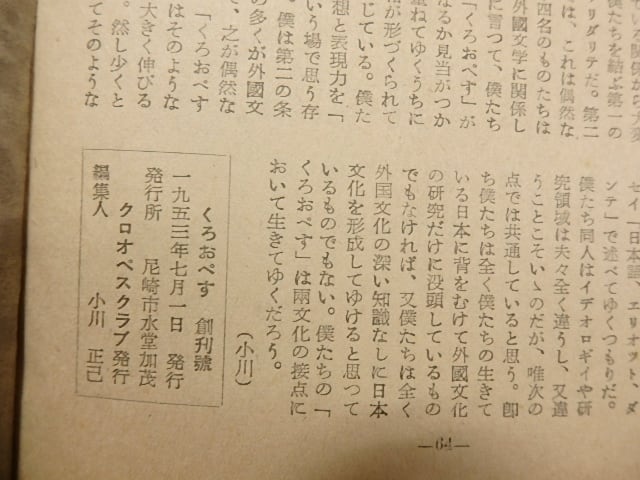 る関係が
僕たちを結ぶ第一の
リダリテだ。第二
は、これは偶然な
四名のものたちは
外國文学に関係し
に言つて、僕たち
「くろおぺす」が
なるか見当がつか
重ねてゆくうちに
が形づくられて
じている。僕た
想と表現力を「
いう場で思う存
。僕は第二の条
の多くが外國文
、之が偶然な
「くろおぺす
はそのような
大きく伸びる
。然し少くと
てそのような
セイ「日本語、エリオット、ダ
ンテ」で述べてゆくつもりだ。
僕たち同人はイデオロギイや研
究領域は夫々全く違うし、又違
うことこそいゝのだが、唯次の
点では共通していると思う。卽
ち僕たちは全く僕たちの生きて
いる日本に背をむけて外國文化
の研究だけに没頭しているもの
でもなければ、又僕たちは全く
外国文化の深い知識なしに日本
文化を形成してゆけると思つて
いるものでもない。僕たちの「
くろおぺす」は兩文化の接点に
おいて生きてゆくだろう。
（小川）
くろおぺす 創刊號
一九五三年七月一日 発行
発行所 尼崎市水堂加茂
クロオペスクラブ発行
編集人 小川 正己
—64—